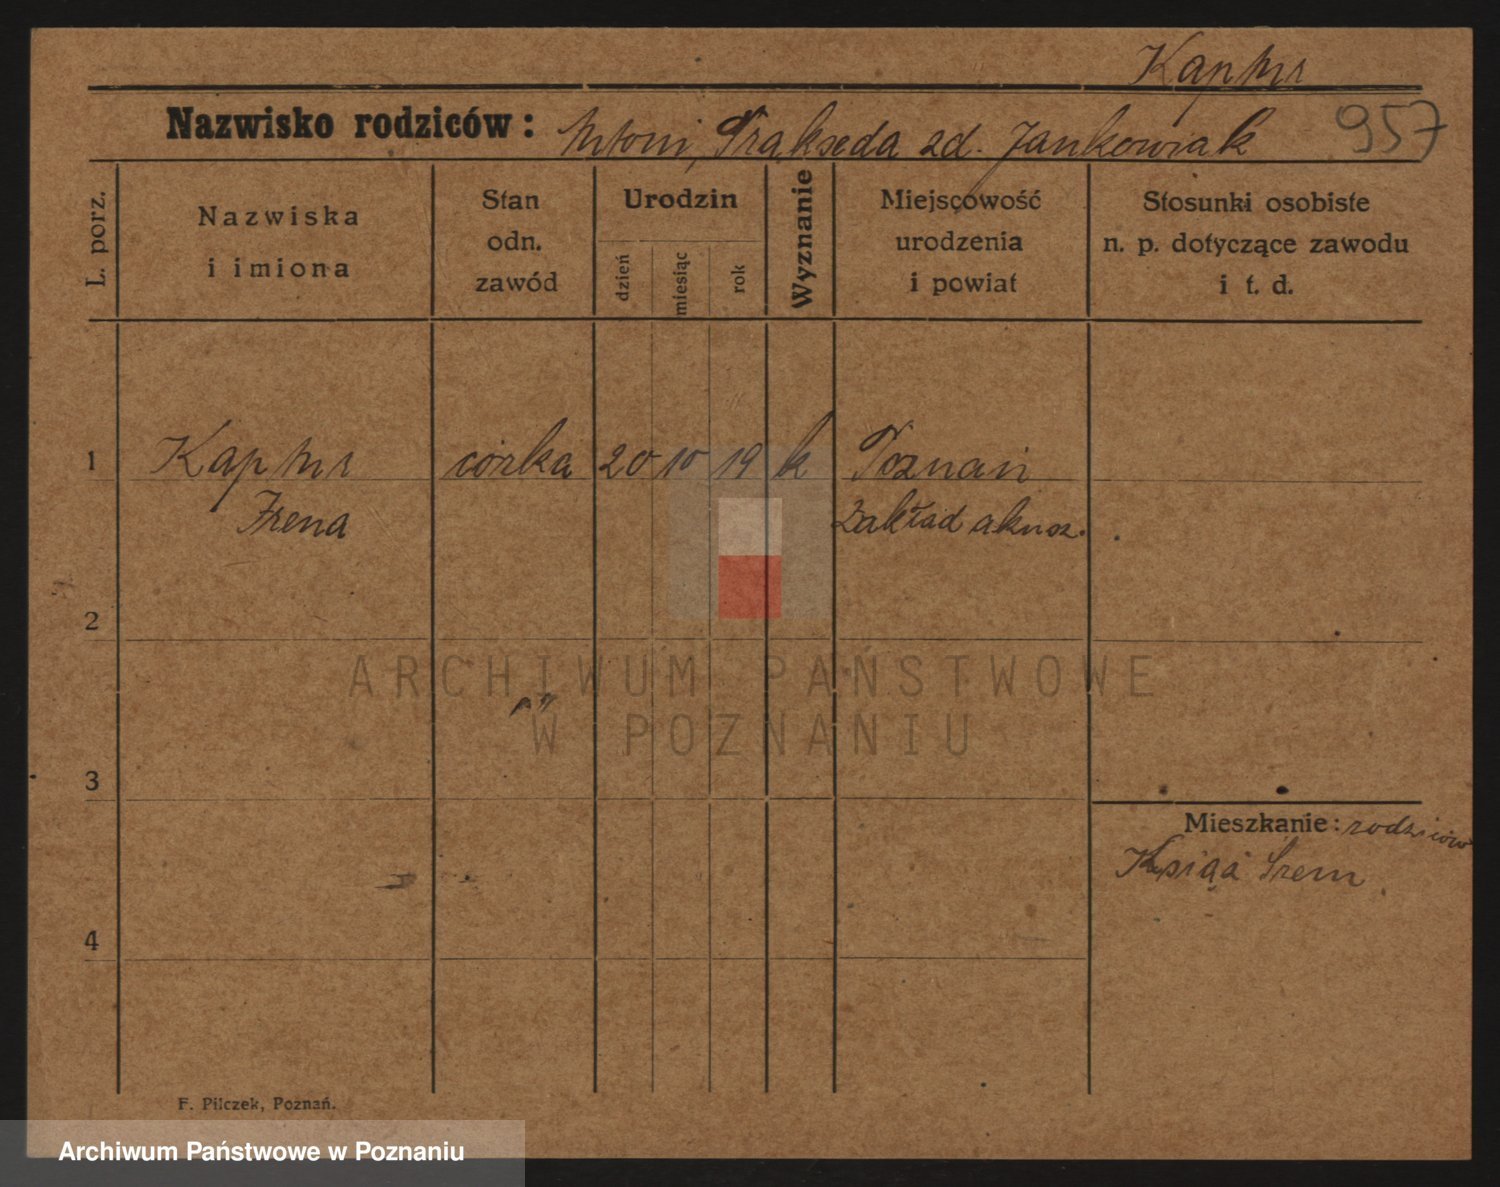 Kaptur
Nazwisko rodziców: Antoni, Prakseda zd. Jankowiak 957
L. porz.
Nazwiska
i imiona
Stan
odn.
zawód
Urodzin
dzień
miesiąc
rok
Wyznanie
Miejscowość
urodzenia
i powiat
Stosunki osobiste
n. p. dotyczące zawodu
i t. d.
1 Kaptur córka 20 10 19 k Poznań
Irena Zakład akusz.
2
3
Mieszkanie: rodziców
Śrem
4
F. Pilczek, Poznań.
ARCHIWUM PAŃSTWOWE
W POZNANIU
Archiwum Państwowe w Poznaniu